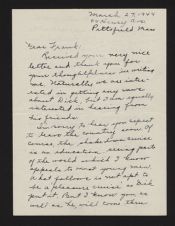 March 27, 1944
Pittsfield Mass
Dear Frank:
Received your very nice
letter and thank you for
your thoughtfulness in writing
me. Naturally we are inter-
ested in getting any news
about Dick, but I am greatly
interested in hearing from
his friends.
I'm sorry to hear you expect
to leave the country soon. Of
course, the
is an education seeing parts
of the world which I know
appeals to most young men
What follows is not apt to
be a pleasure cruise as Dick
put it. But I know you as
well as he will come thru